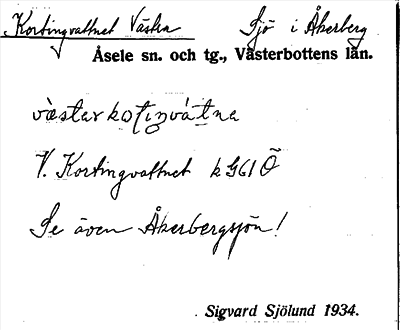 Kortingvattnet Västra Sjö i Åkerberg
Åsele sn. och tg., Västerbottens län.
västarkotiŋvátne
V. Kortingvattnet k 961 Ö
Se även Åkerbergsjön!
Sigvard Sjölund 1934.